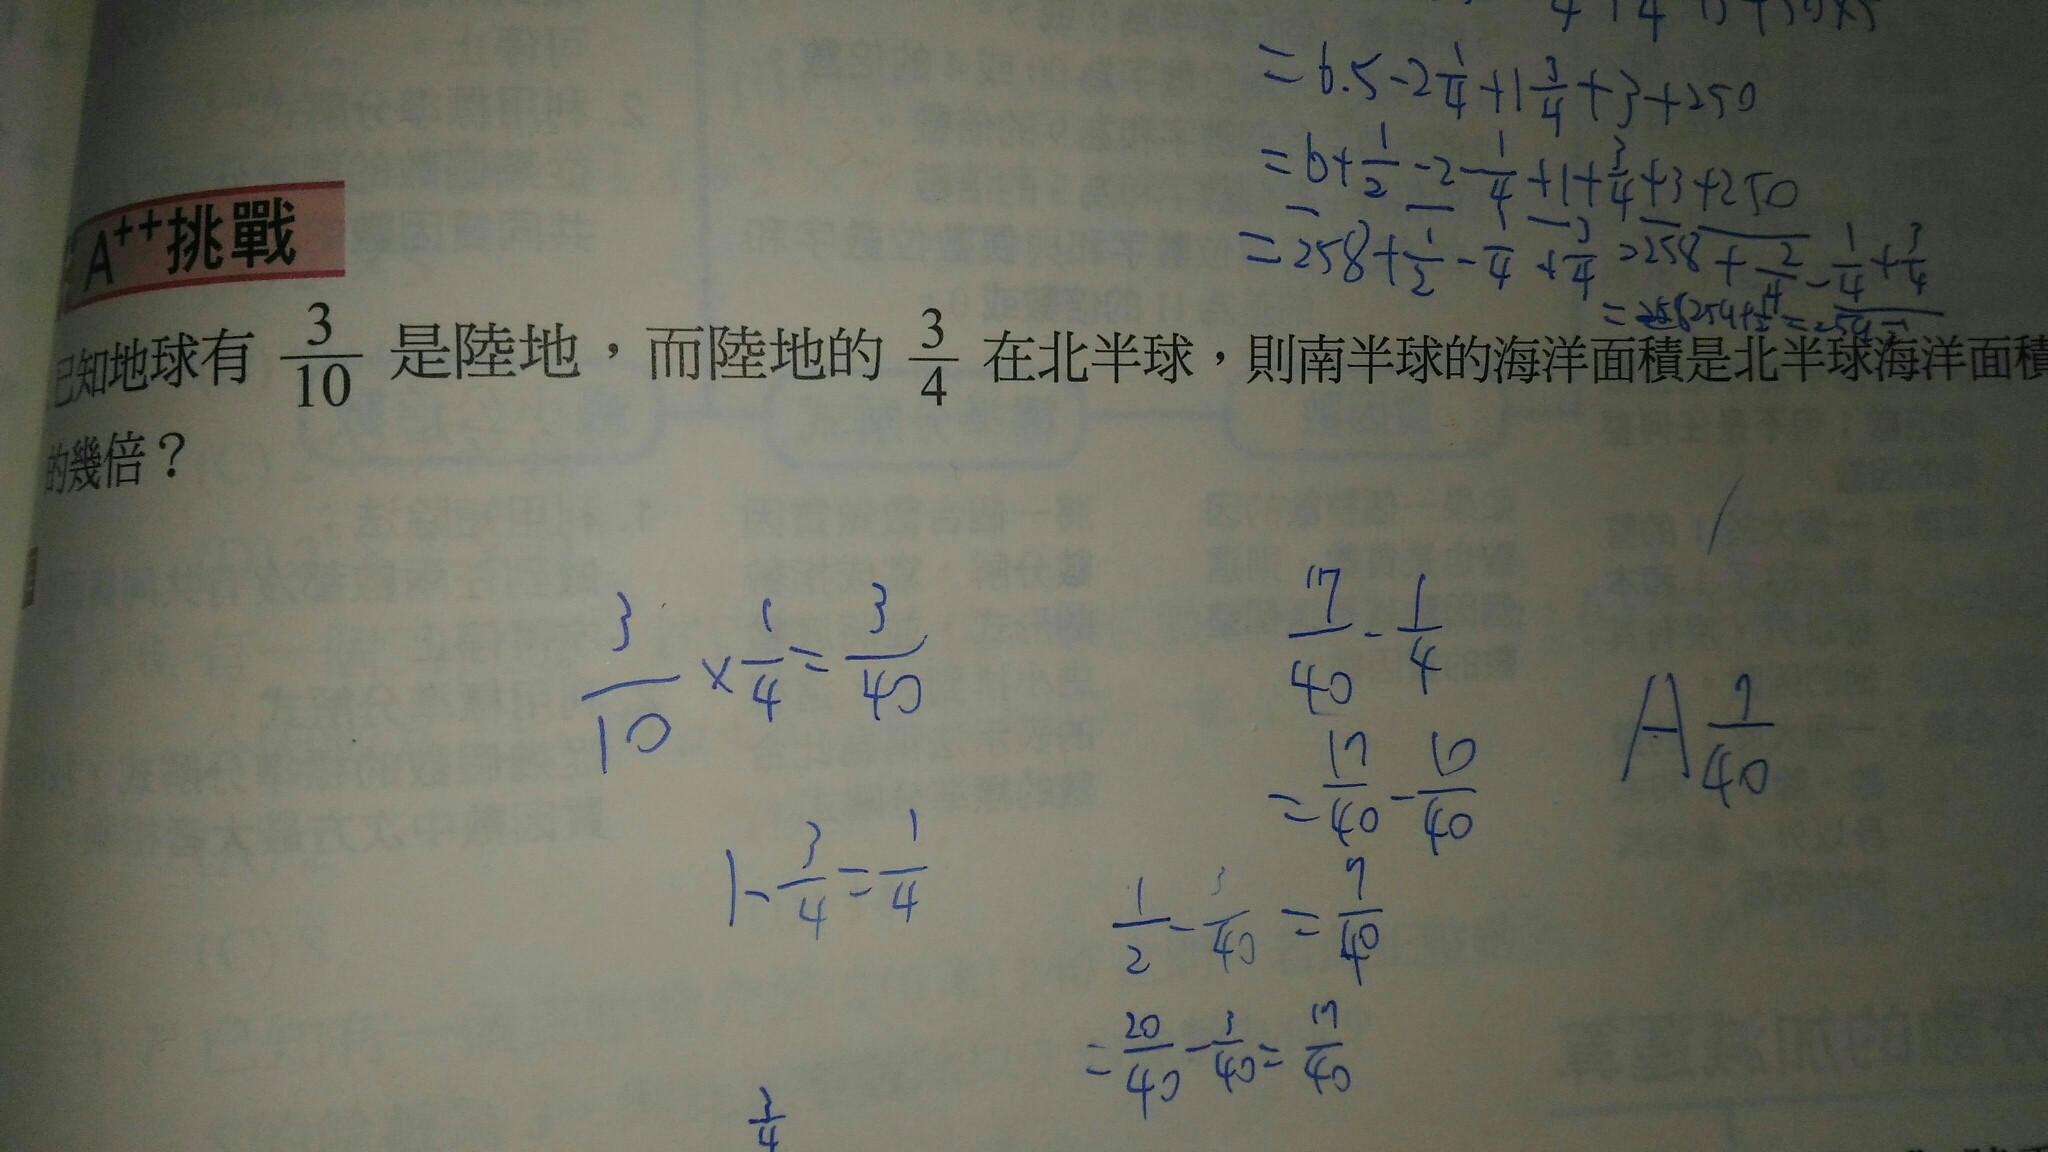 = 6.5 - 2 1/4 + 1 3/4 + 3 + 250
= 6 + 1/2 - 2 - 1/4 + 1 + 3/4 + 3 + 250
= 258 + 1/2 - 1/4 + 3/4 = 258 + 2/4 - 1/4 + 3/4
A++挑戰
已知地球有 3/10 是陸地,而陸地的 3/4 在北半球,則南半球的海洋面積是北半球海洋面積
的幾倍?
3/10 × 1/4 = 3/40
1 - 3/4 = 1/4
17/40 - 1/4
= 17/40 - 10/40
= 7/40
A 7/40
1/2 - 3/40
= 20/40 - 3/40 = 17/40
3/4